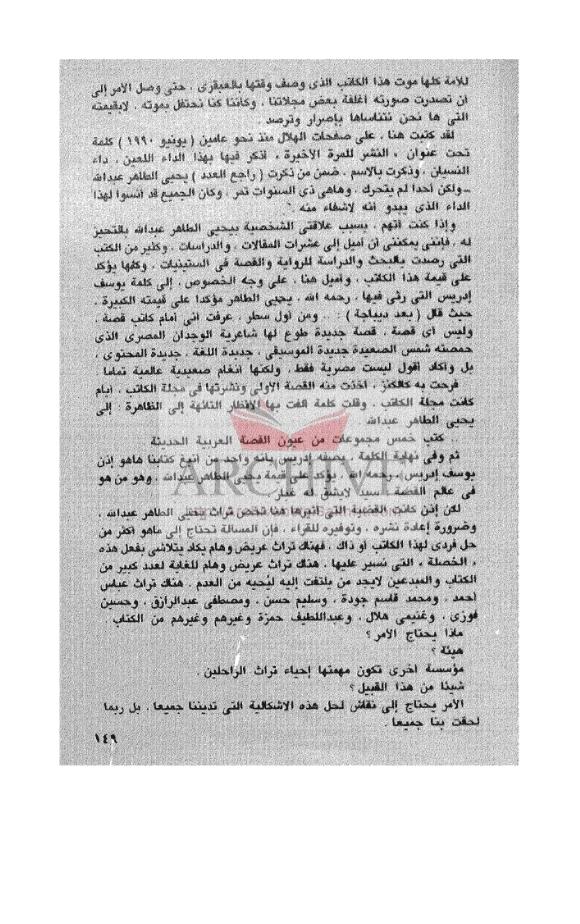 للأمة كلها موت هذا الكاتب الذى وصف وقتها بالعبقرى ، حتى وصل الأمر إلى
أن تصدرت صورته أغلفة بعض مجلاتنا ، وكأننا كنا نحتفل بموته . لابقيمته
التى ها نحن نتناساها بإصرار وترصد .
لقد كتبت هنا ، على صفحات الهلال منذ نحو عامين ( يونيو ١٩٩٠ ) كلمة
تحت عنوان ، النشر للمرة الأخيرة ، اذكر فيها بهذا الداء اللعين ، داء
النسيان ، وذكرت بالاسم . ضمن من ذكرت ( راجع العدد ) يحيى الطاهر عبدالله
ـ ولكن أحدا لم يتحرك . وهاهى ذى السنوات تمر ، وكأن الجميع قد أنسوا لهذا
الداء الذى يبدو أنه لاشفاء منه .
وإذا كنت أتهم ، بسبب علاقتى الشخصية بيحيى الطاهر عبدالله بالتحيز
له . فإننى يمكننى أن أميل إلى عشرات المقالات ، والدراسات . وكثير من الكتب
التى رصدت بالبحث والدراسة للرواية والقصة فى الستينيات ، وكلها يؤكد
على قيمة هذا الكاتب ، وأميل هنا . على وجه الخصوص . إلى كلمة يوسف
إدريس التى رثى فيها ، رحمه الله . يحيى الطاهر مؤكدا على قيمته الكبيرة .
حيث قال ( بعد ديباجة ) : .. ومن أول سطر ، عرفت أنى أمام كاتب قصة .
وليس أى قصة . قصة جديدة طوع لها شاعرية الوجدان المصرى الذى
حمصته شمس الصعيدة جديدة الموسيقى ، جديدة اللغة . جديدة المحتوى ،
بل وأكاد أقول ليست مصرية فقط . ولكنها أنغام صعيدية عالمية تماما
فرحت به كالكنز ، أخذت منه القصة الأولى ونشرتها فى مجلة الكاتب ، أيام
كانت مجلة الكاتب . وقلت كلمة ألفت بها الأنظار التائهة إلى الظاهرة : إلى
يحيى الطاهر عبدالله
.. كتب خمس مجموعات من عيون القصة العربية الحديثة
ثم وفى نهاية الكلمة ، يصفه إدريس بأنه واحد من أنبغ كتابنا هاهو إذن
يوسف إدريس ، رحمه الله . يؤكد على قيمة يحيى الطاهر عبدالله . وهو من هو
فى عالم القصة . أسد لايشق له غبار
لكن إذن كانت القضية التى أثيرها هنا تخص تراث يحيى الطاهر عبدالله ،
وضرورة إعادة نشره ، وتوفيره للقراء . فإن المسألة تحتاج إلى ماهو أكثر من
حل فردى لهذا الكاتب أو ذاك . فهناك تراث عريض وهام يكاد يتلاشى بفعل هذه
، الخصلة ، التى نسير عليها . هناك تراث عريض وهام للغاية لعدد كبير من
الكتاب والمبدعين لايجد من يلتفت إليه ليحييه من العدم . هناك تراث عباس
أحمد . ومحمد قاسم جودة ، وسليم حسن . ومصطفى عبدالرازق ، وحسين
فوزى . وغنيمى هلال . وعبداللطيف حمزة وغيرهم وغيرهم من الكتاب .
ماذا يحتاج الأمر ؟
هيئة ؟
مؤسسة أخرى تكون مهمتها إحياء تراث الراحلين .
شيئا من هذا القبيل ؟
الأمر يحتاج إلى نقاش لحل هذه الإشكالية التى تديننا جميعا . بل ربما
لحقت بنا جميعا .
١٤٩
ARCHIVE